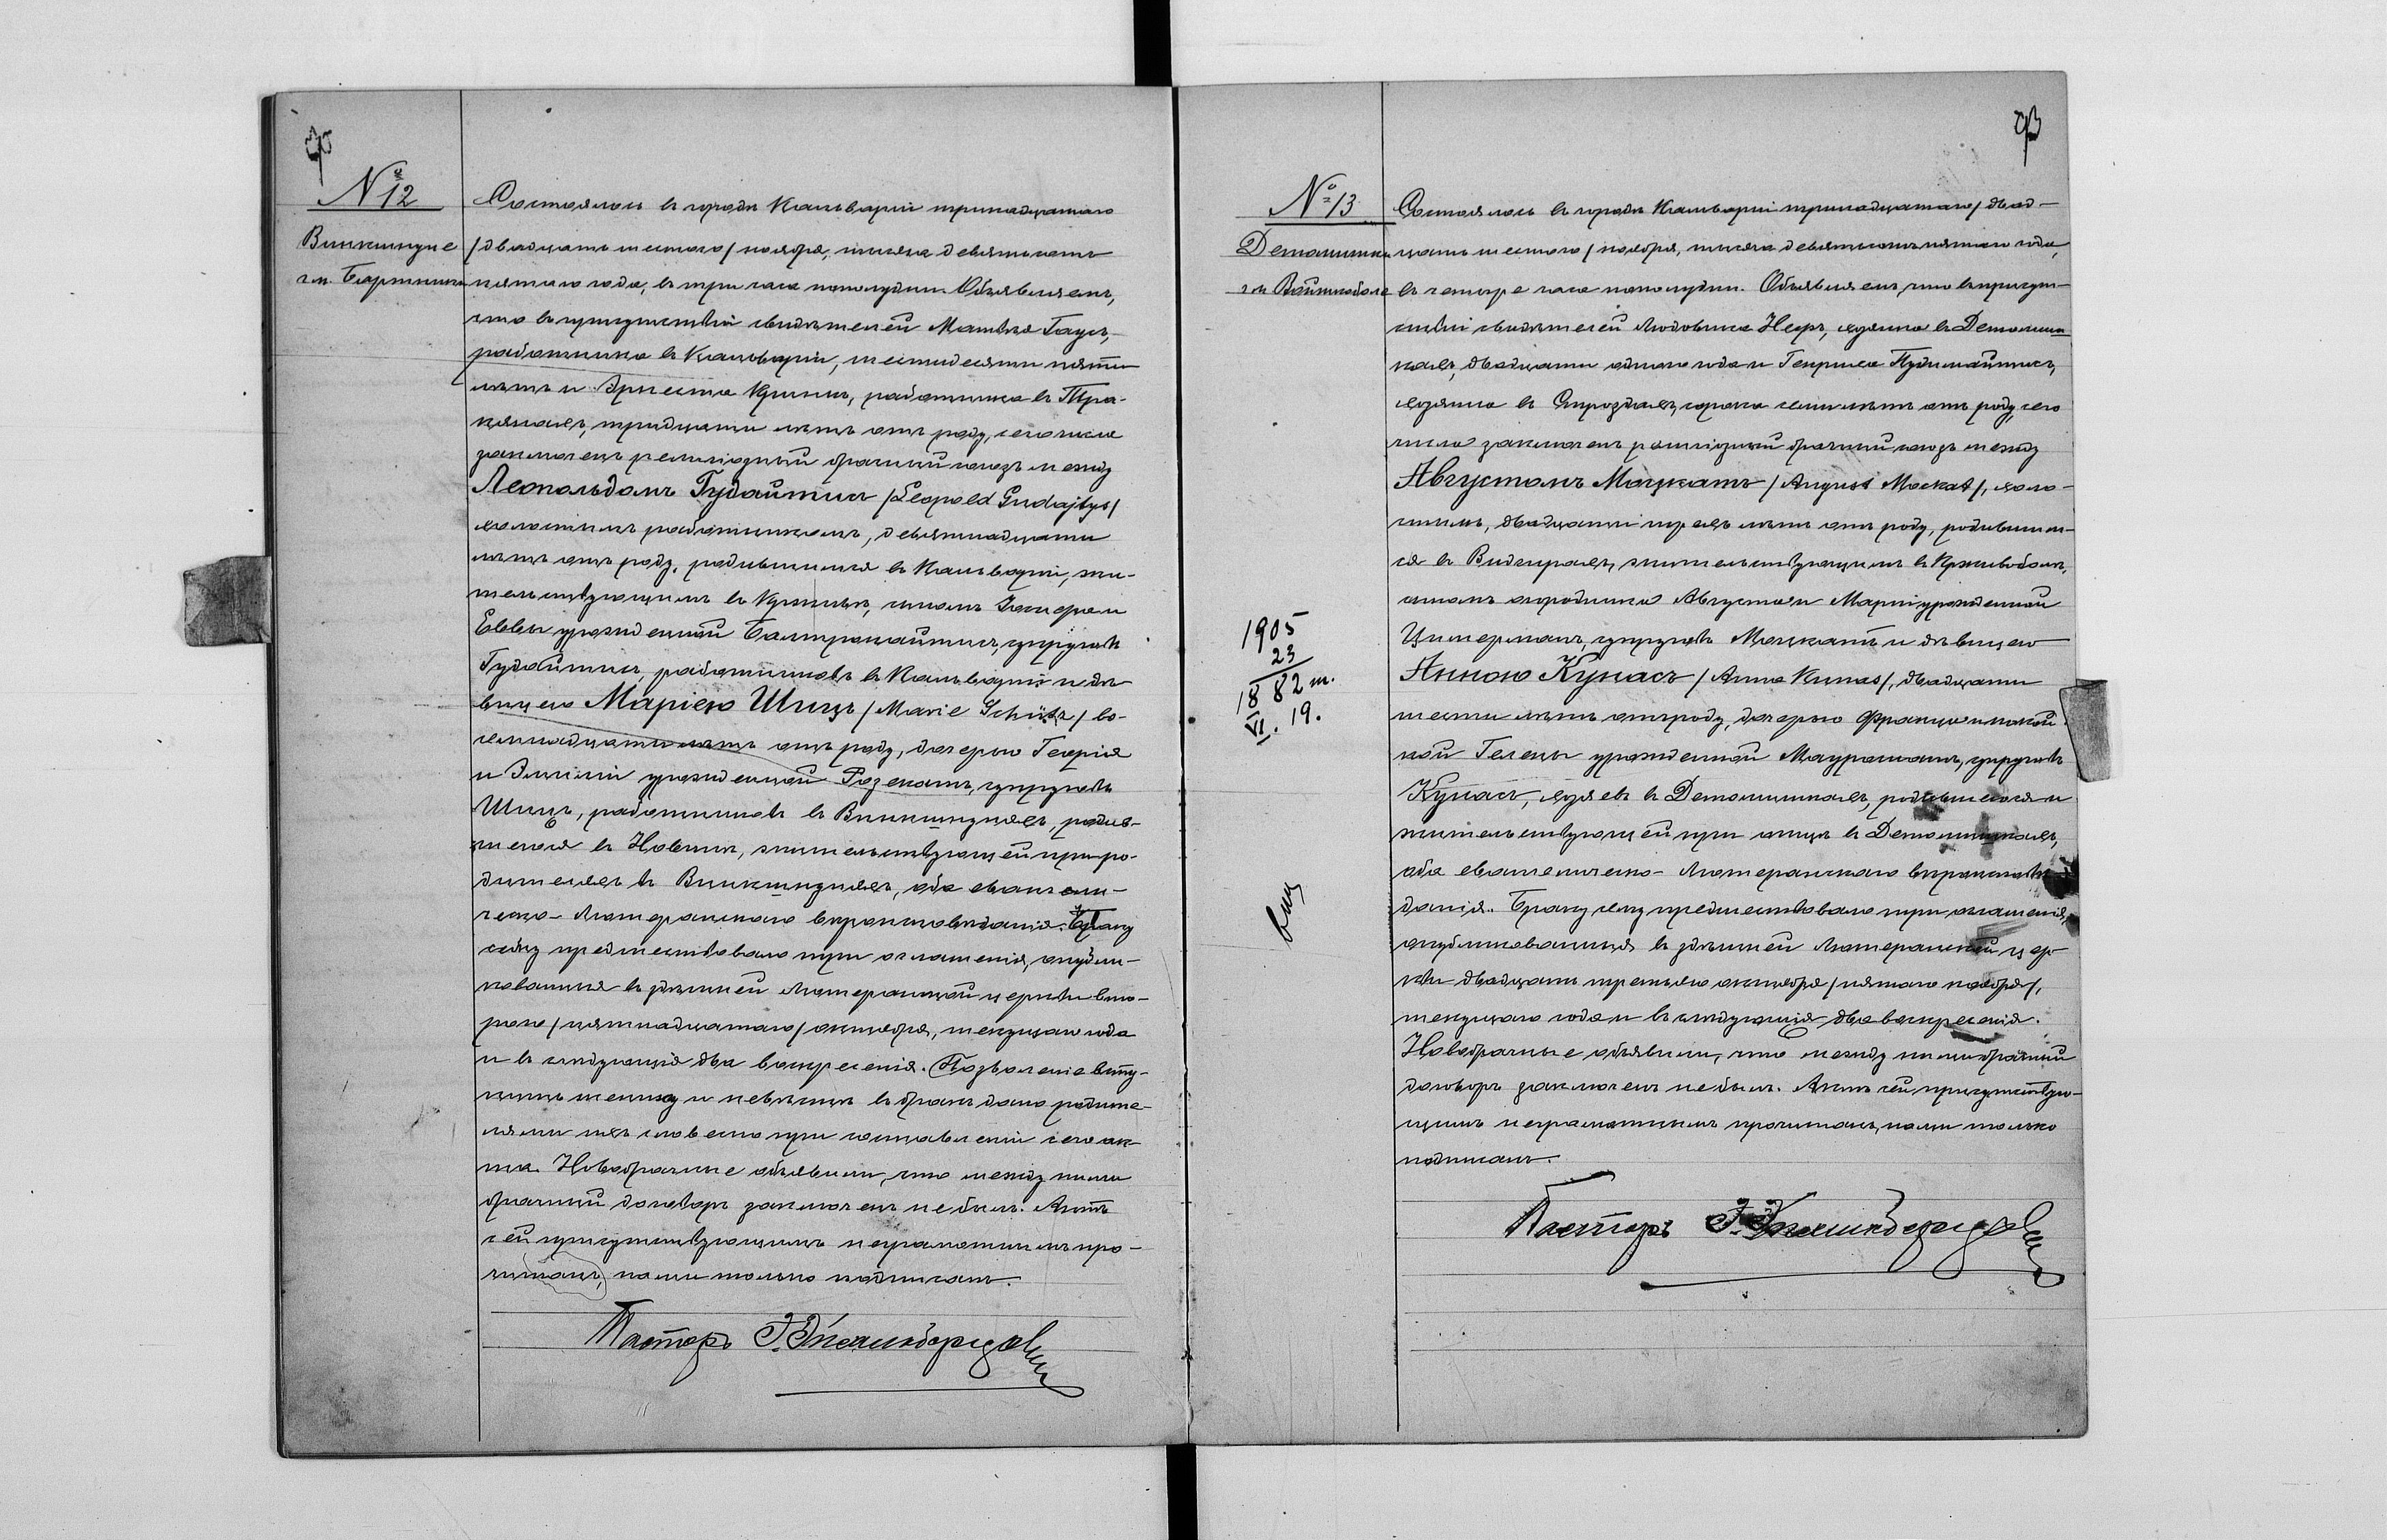 № 12
Виикшнупе
гм. Бартники
Состоялось въ городѣ Кальваріи тринадцатаго
/двадцать шестого/ ноября, тысяча девятьсотъ
пятаго года, въ три часа пополудни. Объявляемъ,
что въ присутствіи свидѣтелей Матвѣя Гаусъ,
работника въ Кальваріи, шестидесяти пяти
лѣтъ и Эрнеста, работника въ Тра-
тридцати лѣтъ отъ роду, сего числа
заключенъ религіозный брачный союзъ между
Леопольдомъ Гудайтисъ /Leopold Gudajtys/
холостымъ работникомъ, девятнадцати
лѣтъ отъ роду, родившимся въ Кальваріи, жи-
тельствующимъ въ сыномъ и
Еввы урожденной супруговъ
Гудайтисъ, работниковъ въ Кальваріи и дѣ-
вицею Маріею Шицъ /Marie Schütz/ во-
семнадцати лѣтъ отъ роду, дочерью Георгія
и Эмиліи урожденной Розенатъ, супруговъ
Шицъ, работниковъ въ родив-
шеюся въ Новинѣ, жительствующей при ро-
дителяхъ въ оба евангели-
ческо-Лютеранскаго вѣроисповѣданія. Браку
сему предшествовало три оглашенія, опубли-
кованныя въ здѣшней Лютеранской церкви вто-
рого /пятнадцатаго/ октября, текущаго года
и въ слѣдующія два воскресенія. Позволеніе всту-
пить жениху и невѣстѣ въ бракъ дано родите-
лями ихъ словесно при составленіи сего ак-
та. Новобрачные объявили, что между ними
брачный договоръ заключенъ не былъ. Актъ
сей присутствующимъ неграмотнымъ про-
читанъ, нами только подписанъ.
Пасторъ
№ 13
Детомишки
гм Войткобола
1905
23
1882 т.
VI. 19.
Состоялось въ городѣ Кальваріи тринадцатаго /двад-
цать шестого/ ноября, тысяча девятьсотъ пятаго года,
въ четыре часа пополудни. Объявляемъ, что въ присут-
ствіи свидѣтелей Людовика хозяина въ Детомиш-
кахъ, двадцати одного года и Генриха Пудимайтисъ,
хозяина въ сорока семи лѣтъ отъ роду, сего
числа заключенъ религіозный брачный союзъ между
Августомъ Моцкатъ /August Mockat/, холо-
стымъ, двадцати трехъ лѣтъ отъ роду, родившим-
ся въ Видгирахъ, жительствующимъ въ
сыномъ огородника Августа и Маріи урожденной
Цимерманъ, супруговъ Моцкатъ и дѣвицею
Анною Кунасъ /Anna Kunas/, двадцати
шести лѣтъ отъ роду, дочерью Франца и покой-
ной Гелены урожденной супруговъ
Кунасъ, хозяевъ въ Детомишкахъ, родившеюся и
жительствующей при отцѣ въ Детомишкахъ,
оба евангелическо-Лютеранскаго вѣроисповѣ-
данія. Браку сему предшествовало три оглашенія,
опубликованныя въ здѣшней Лютеранской цер-
кви двадцать третьяго октября /пятаго ноября/,
текущаго года и въ слѣдующія два воскресенія.
Новобрачные объявили, что между ними брачный
договоръ заключенъ не былъ. Актъ сей присутствую-
щимъ неграмотнымъ прочитанъ, нами только
подписанъ.
Пасторъ